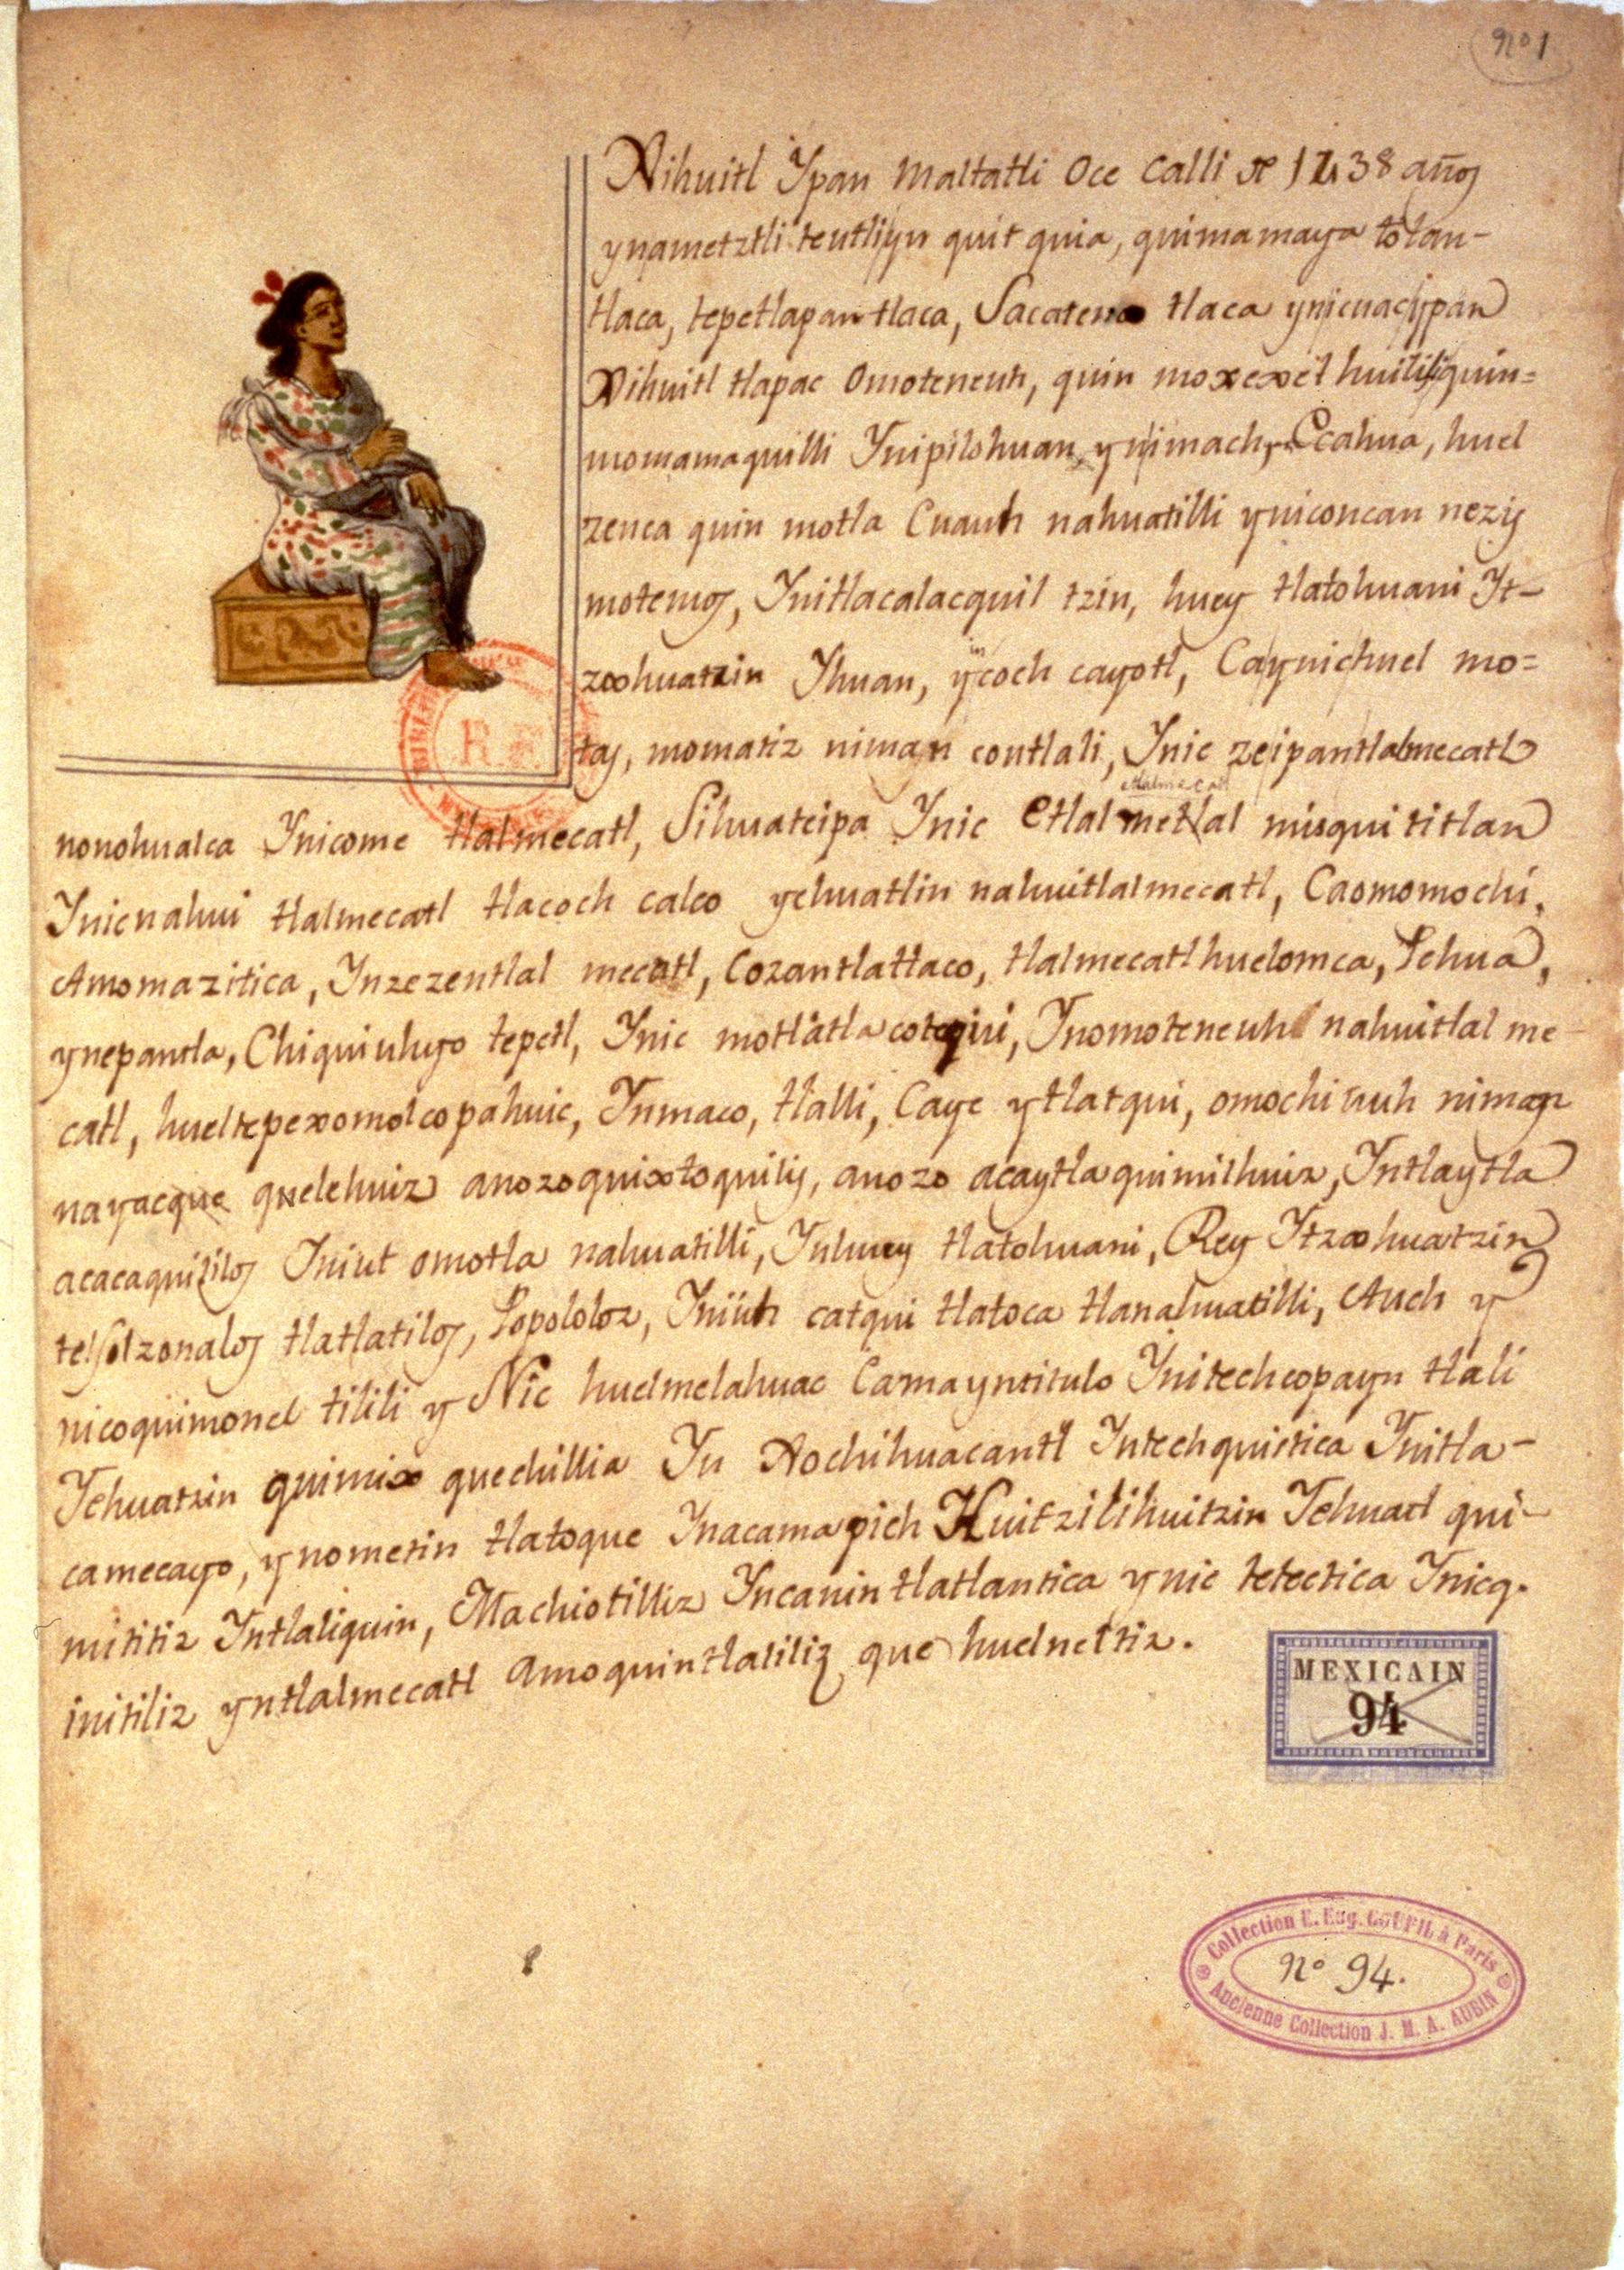 nº 1
Xihuitl Ypan Maltatli Oce Calli de 1438 años
ynametztli teutliyn quitquia, quimamaya tolan-
tlaca, tepetlapan tlaca, Sacatenco tlaca ynicuac ypan
Xihuitl tlapac Omoteneuh, quin moxexelhuilili quin=
momamaquilli Ynipilohuan, ynimachy Ccahua, huel
zenca quin motla Cuauh nahuatilli yniconcan nezis
motemos, Ynitlacalacquil tzin, huey tlatohuani Yt-
zcohuatzin Yhuan, yn coch cayotl, Caynichuel mo=
tas, momatiz niman contlali, Ynic zeipantlalmecatl
nonohualca Ynicome tlalmecatl, Sihuateipa Ynic Etlal metlal misquititlan
etlalmecatl
Ynicnahui tlalmecatl tlacoch calco yehuatlin nahuitlalmecatl, Caomomochi,
Amomazitica, Ynzezentlal mecatl, Cozantlatlaco, tlalmecatl huelomca, Sehua,
ynepantla, Chiquiuhyo tepetl, Ynic motlatlacotequi, Ynomoteneuh nahuitlal me-
catl, hueltepexomolcopahuic, Ynmaco, tlalli, Caye ytlatqui, omochiuh niman
nayacque quelehuiz anozoquixtoquilis, anozo acaytlaquimilhuiz, Yntlaytla
acacaquililos Yniut omotla nahuatilli, Ynhuey tlatohuani, Rey Ytzcohuatzin
tetzonalos tlatlatilos, Popololoz, Yniuh catqui tlatoca tlanahuatilli, Auch y
nicoquimonel tilili y Nic huelmelahuac Camayntitulo Ynitechcopayn tlali
Yehuatzin quimix quechillia Yn Xochihuacantl Yntechquistica Ynitla-
camecayo, ynometin tlatoque Ynacamapich Huitzilihuitzin Yehuatl qui-
mititiz Yntlaliquin, Machiotilliz Yncanin tlatlantica ynic tetectica Ynicq.
initiliz yntlalmecatl Amoquintlatiliz que huelneltiz.
R.F.
MEXICAIN
94
Collection E. Eug. GOUPIL à Paris
nº 94.
Ancienne Collection J. M. A. AUBIN